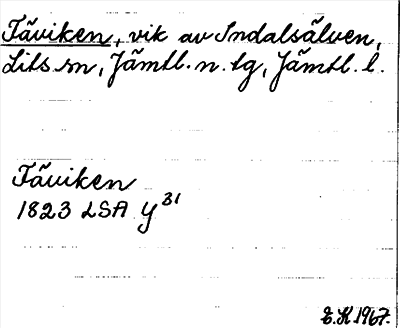 Täviken, vik av Indalsälven,
Lits sn, Jämtl. n. tg, Jämtl. l.
Täviken
1823 LSA Y 31
E.H. 1967.